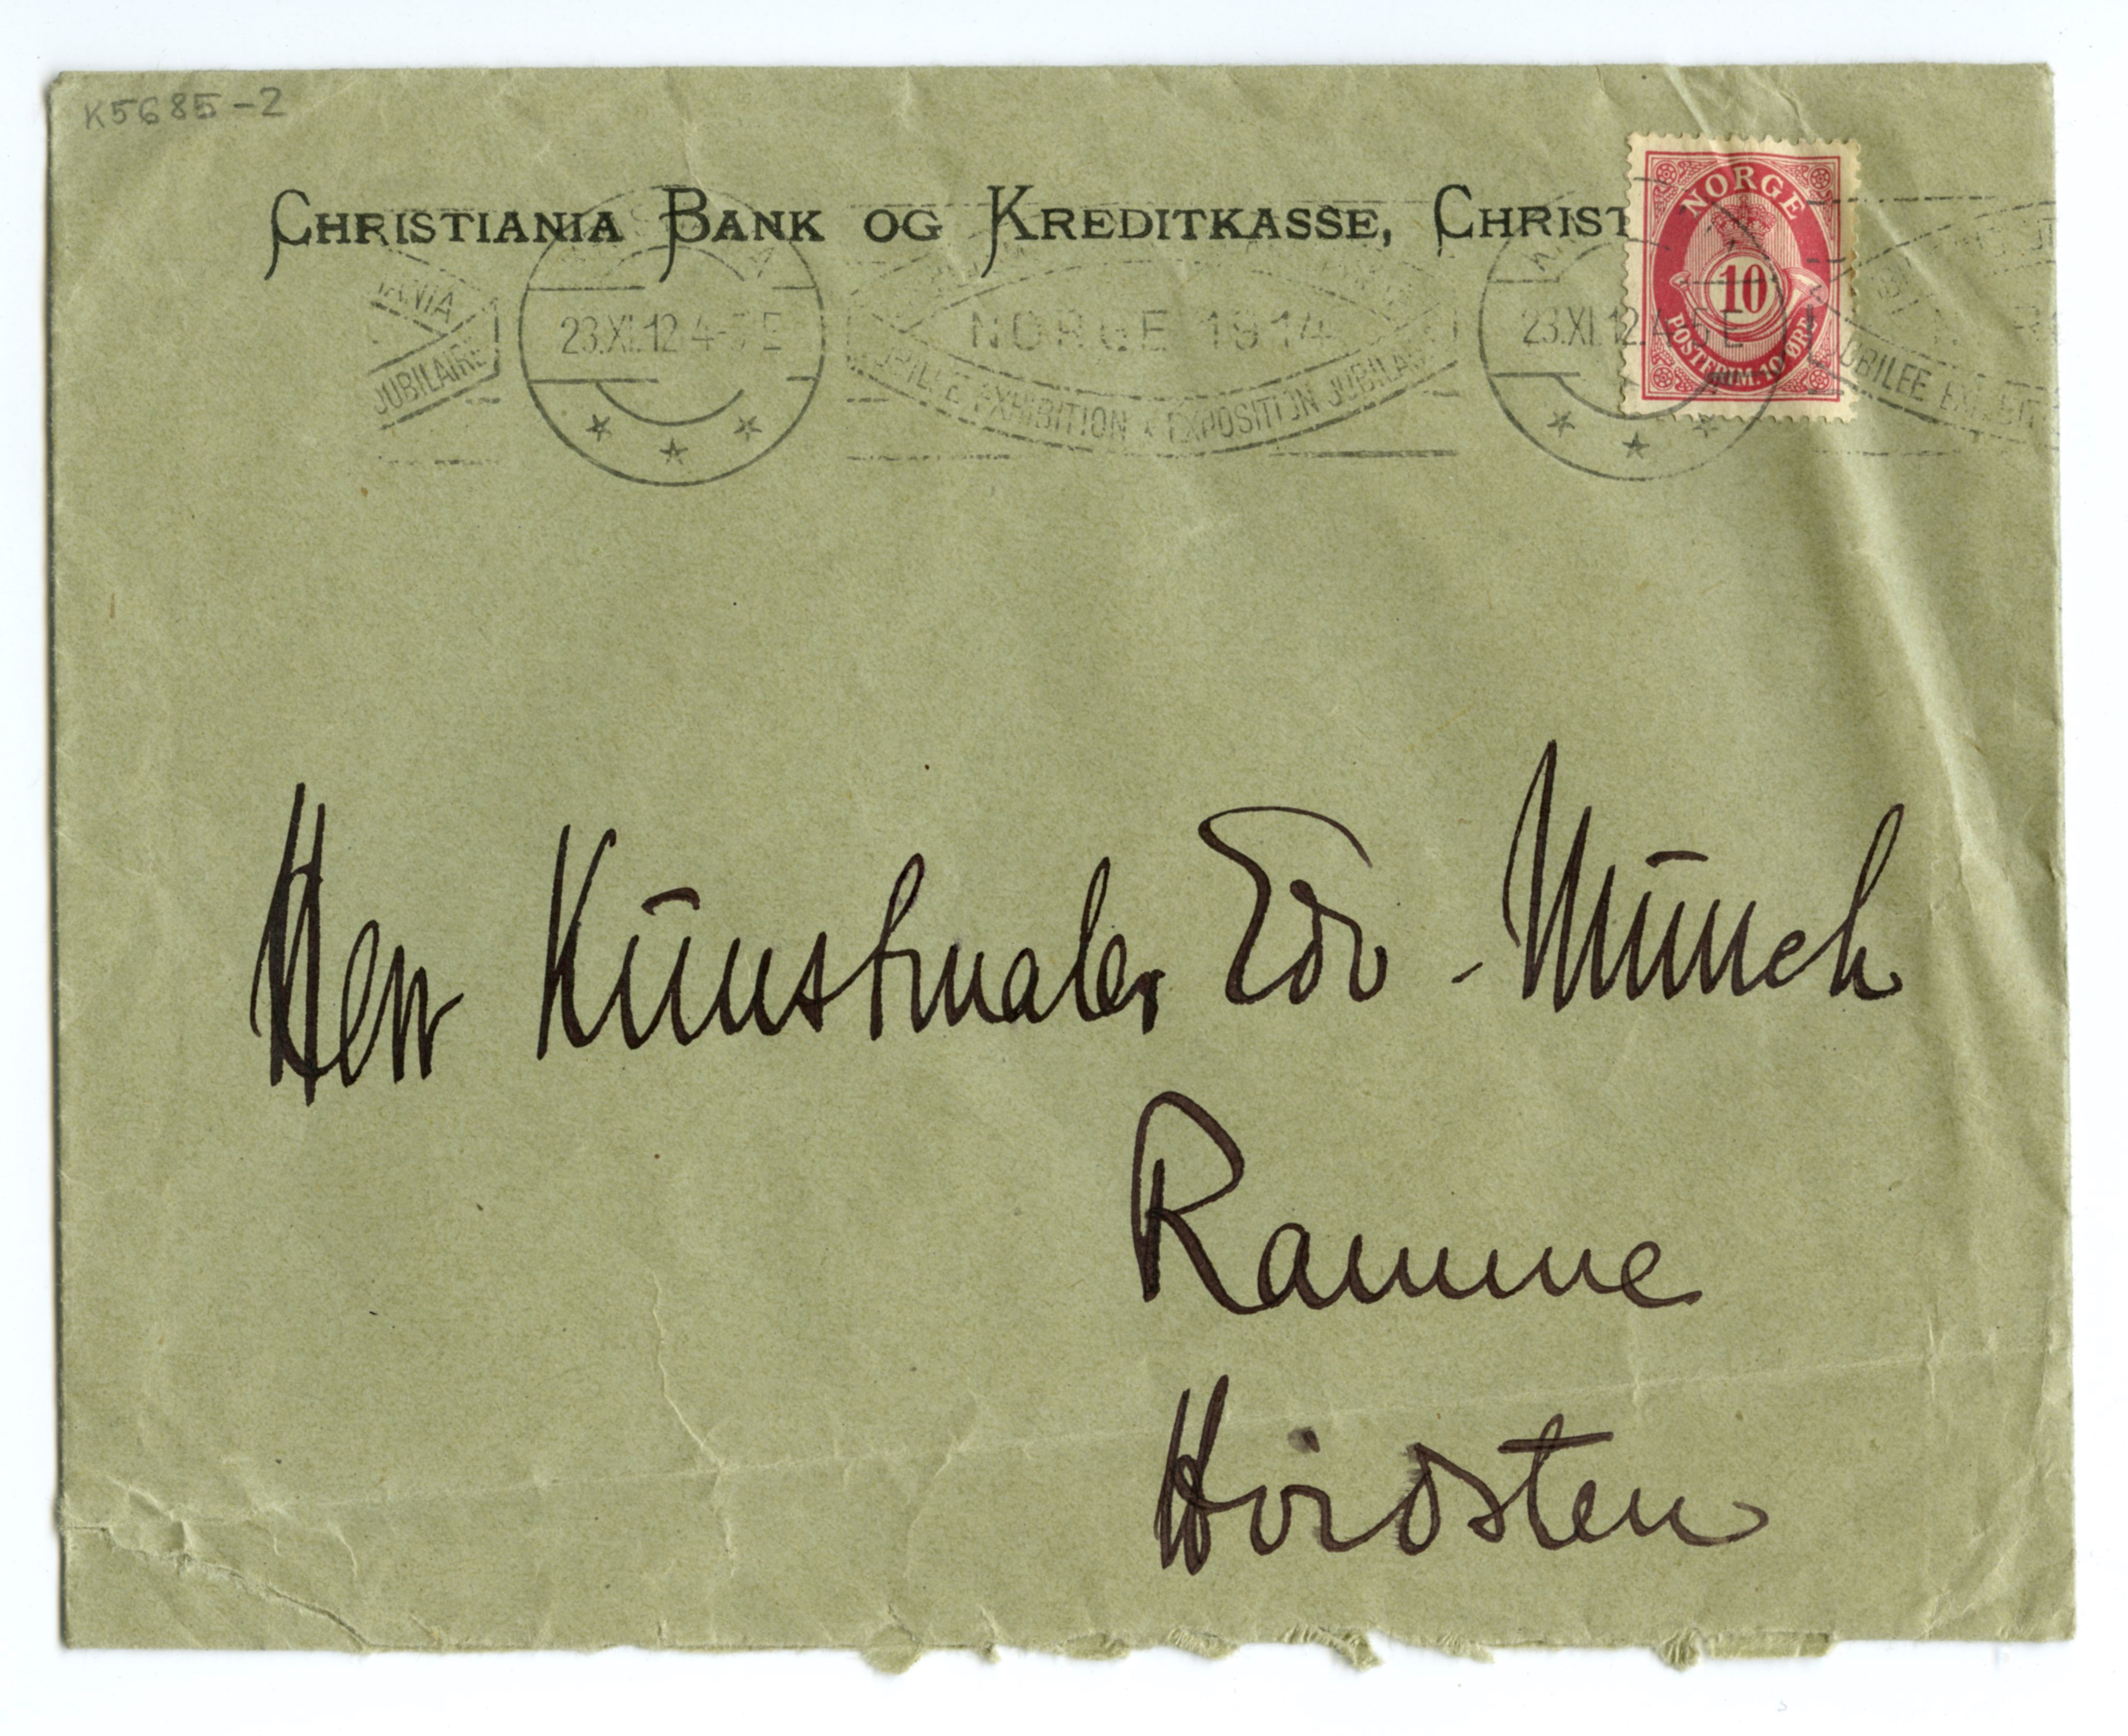 K5685-2
CHRISTIANIA BANK OG KREDITKASSE, CHRIST
NORGE
10
POSTFRIM. 10 ØRE
IANIA
JUBILAIRE
23.XI.12 4-5 E
NORGE 1914
JUBILEE EXHIBITION EXPOSITION JUBILA
23.XI.12.4-5 E
JUBILEE EXHIBIT
Herr Kunstmaler Edv. Munch
Ramme
Hvidsten